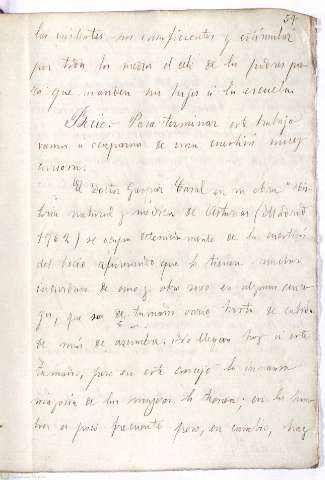 54
las existentes son suficientes y estimular
por todos los medios el celo de los padres pa-
ra que manden sus hijos á la escuela.
Bocio.- Para terminar este trabajo
vamos a ocuparnos de una cuestión muy
curiosa.
El Doctor Gaspar Casal en su obra "His-
toria natural y médica de Asturias (Madrid
1762) se ocupa detenidamente de la cuestión
del bocio afirmando que lo tienen muchos
individuos de uno y otro sexo en algunos conce-
jos, que de tamaño vario hasta de cabida
de más de azumbre. No llegan hoy á este
tamaño, pero en este concejo la inmensa
mayoría de las mujeres lo tienen; en los hom-
bres es poco frecuente pero, en cambio, hay